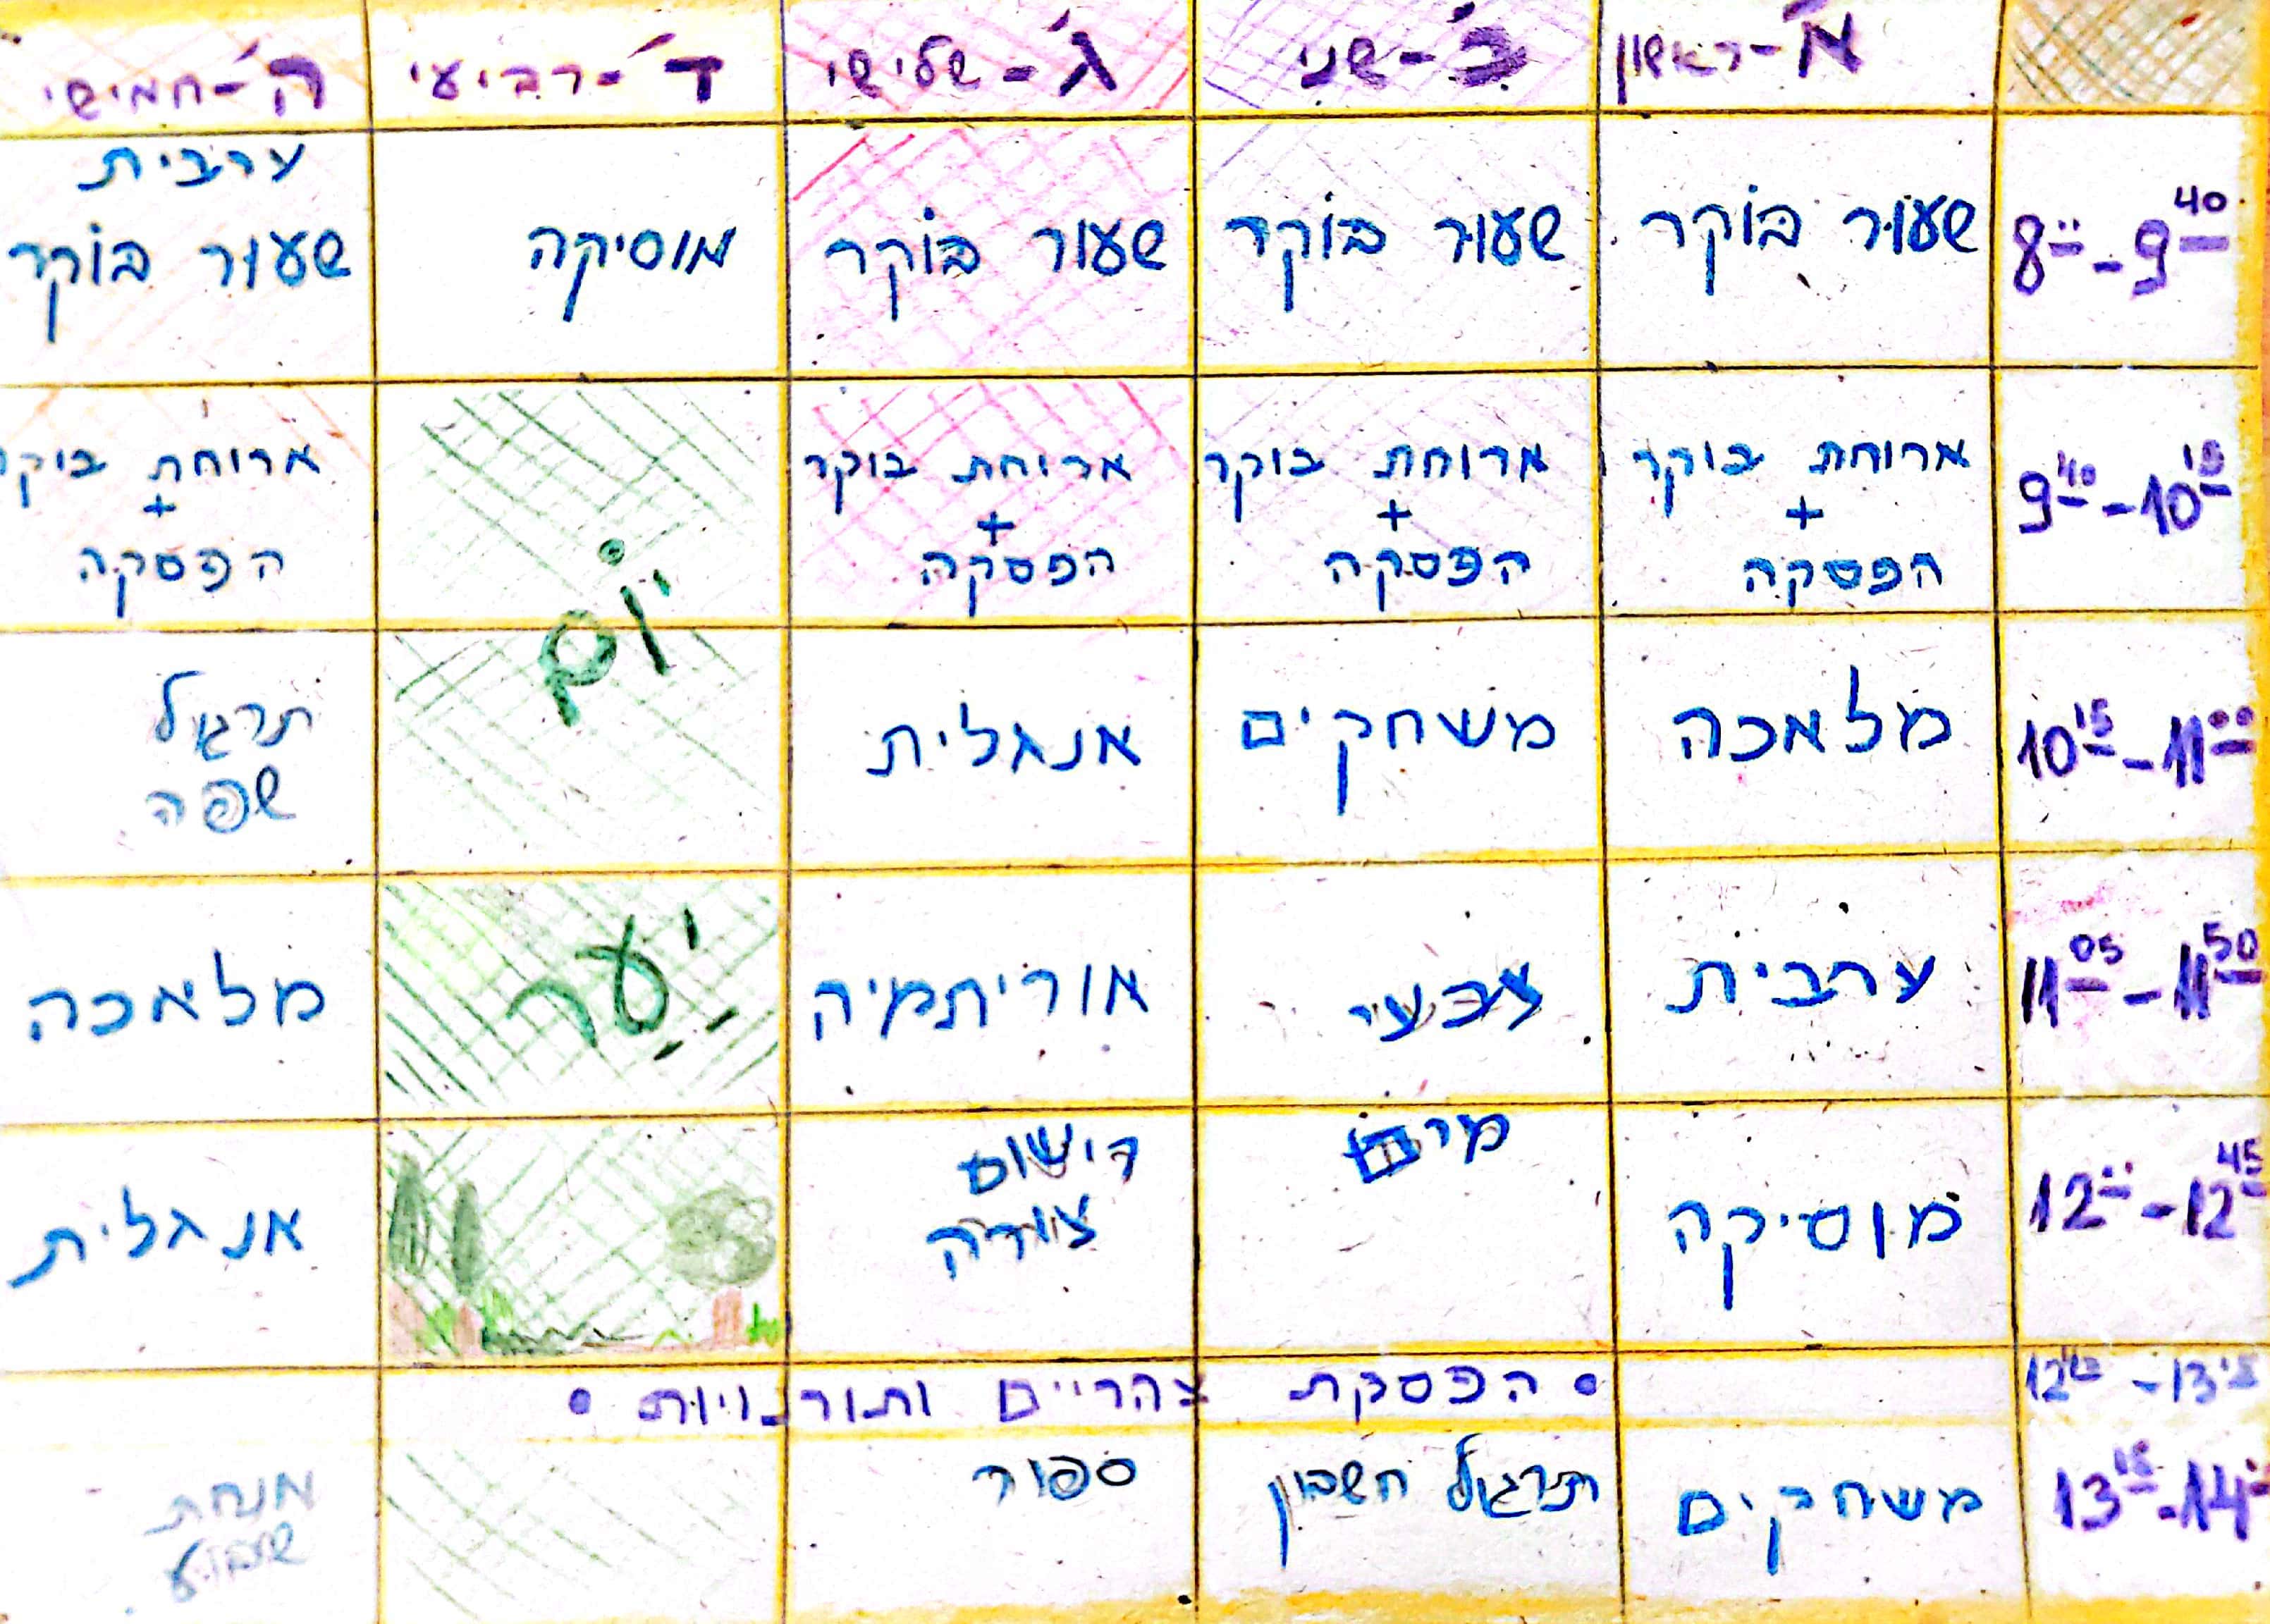 א'-ראשון ב'-שני ג'-שלישי ד'-רביעי ה'-חמישי
8:00 - 9:40 שעור בוקר שעור בוקר שעור בוקר מוסיקה ערבית
שעור בוקר
9:40 - 10:15 ארוחת בוקר ארוחת בוקר ארוחת בוקר ארוחת בוקר
+ + + +
הפסקה הפסקה הפסקה הפסקה
יום
10:15 - 11:00 מלאכה משחקים אנגלית תרגול
שפה
11:05 - 11:50 ערבית צבעי אוריתמיה יער מלאכה
12:00 - 12:45 מוסיקה רישום אנגלית
צורה
12:45 - 13:15 • הפסקת צהריים ותורנויות •
13:15 - 14:00 משחקים תרגול חשבון ספור מנחת
שבוע